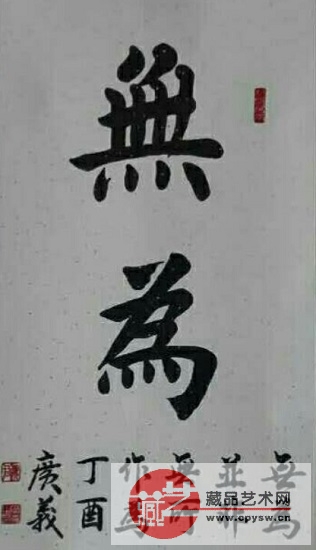 無
為
無為
並非
無所
作為
丁酉
廣義
藏品艺术网
www.cpysw.cn